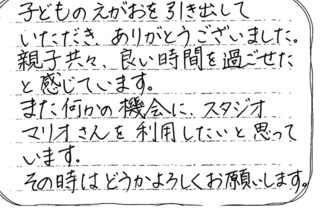 子どものえがおを引き出して
いただき、ありがとうございました。
親子共々、良い時間を過ごせた
と感じています。
また何かの機会に、スタジオ
マリオさんを利用したいと思って
います。
その時はどうかよろしくお願いします。